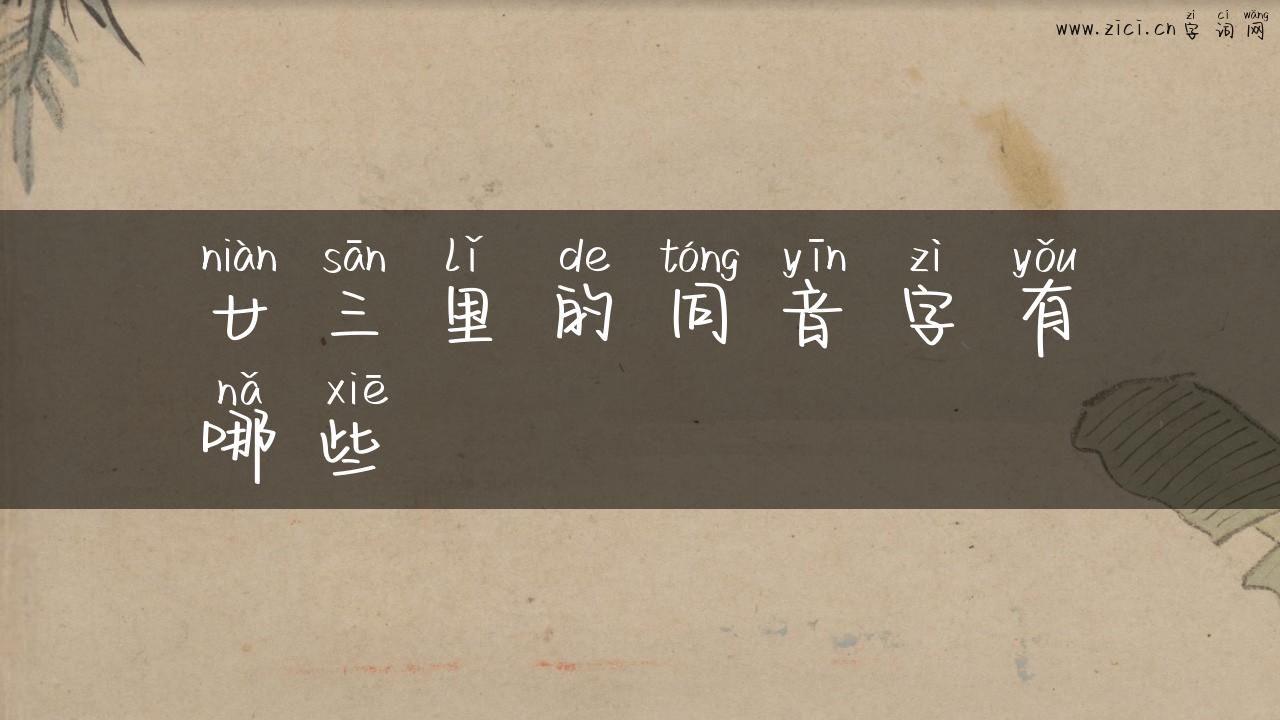 zì cí wǎng
www.zici.cn 字 词 网
niàn sān lǐ de tóng yīn zì yǒu
廿 三 里 的 同 音 字 有
nǎ xiē
哪 些